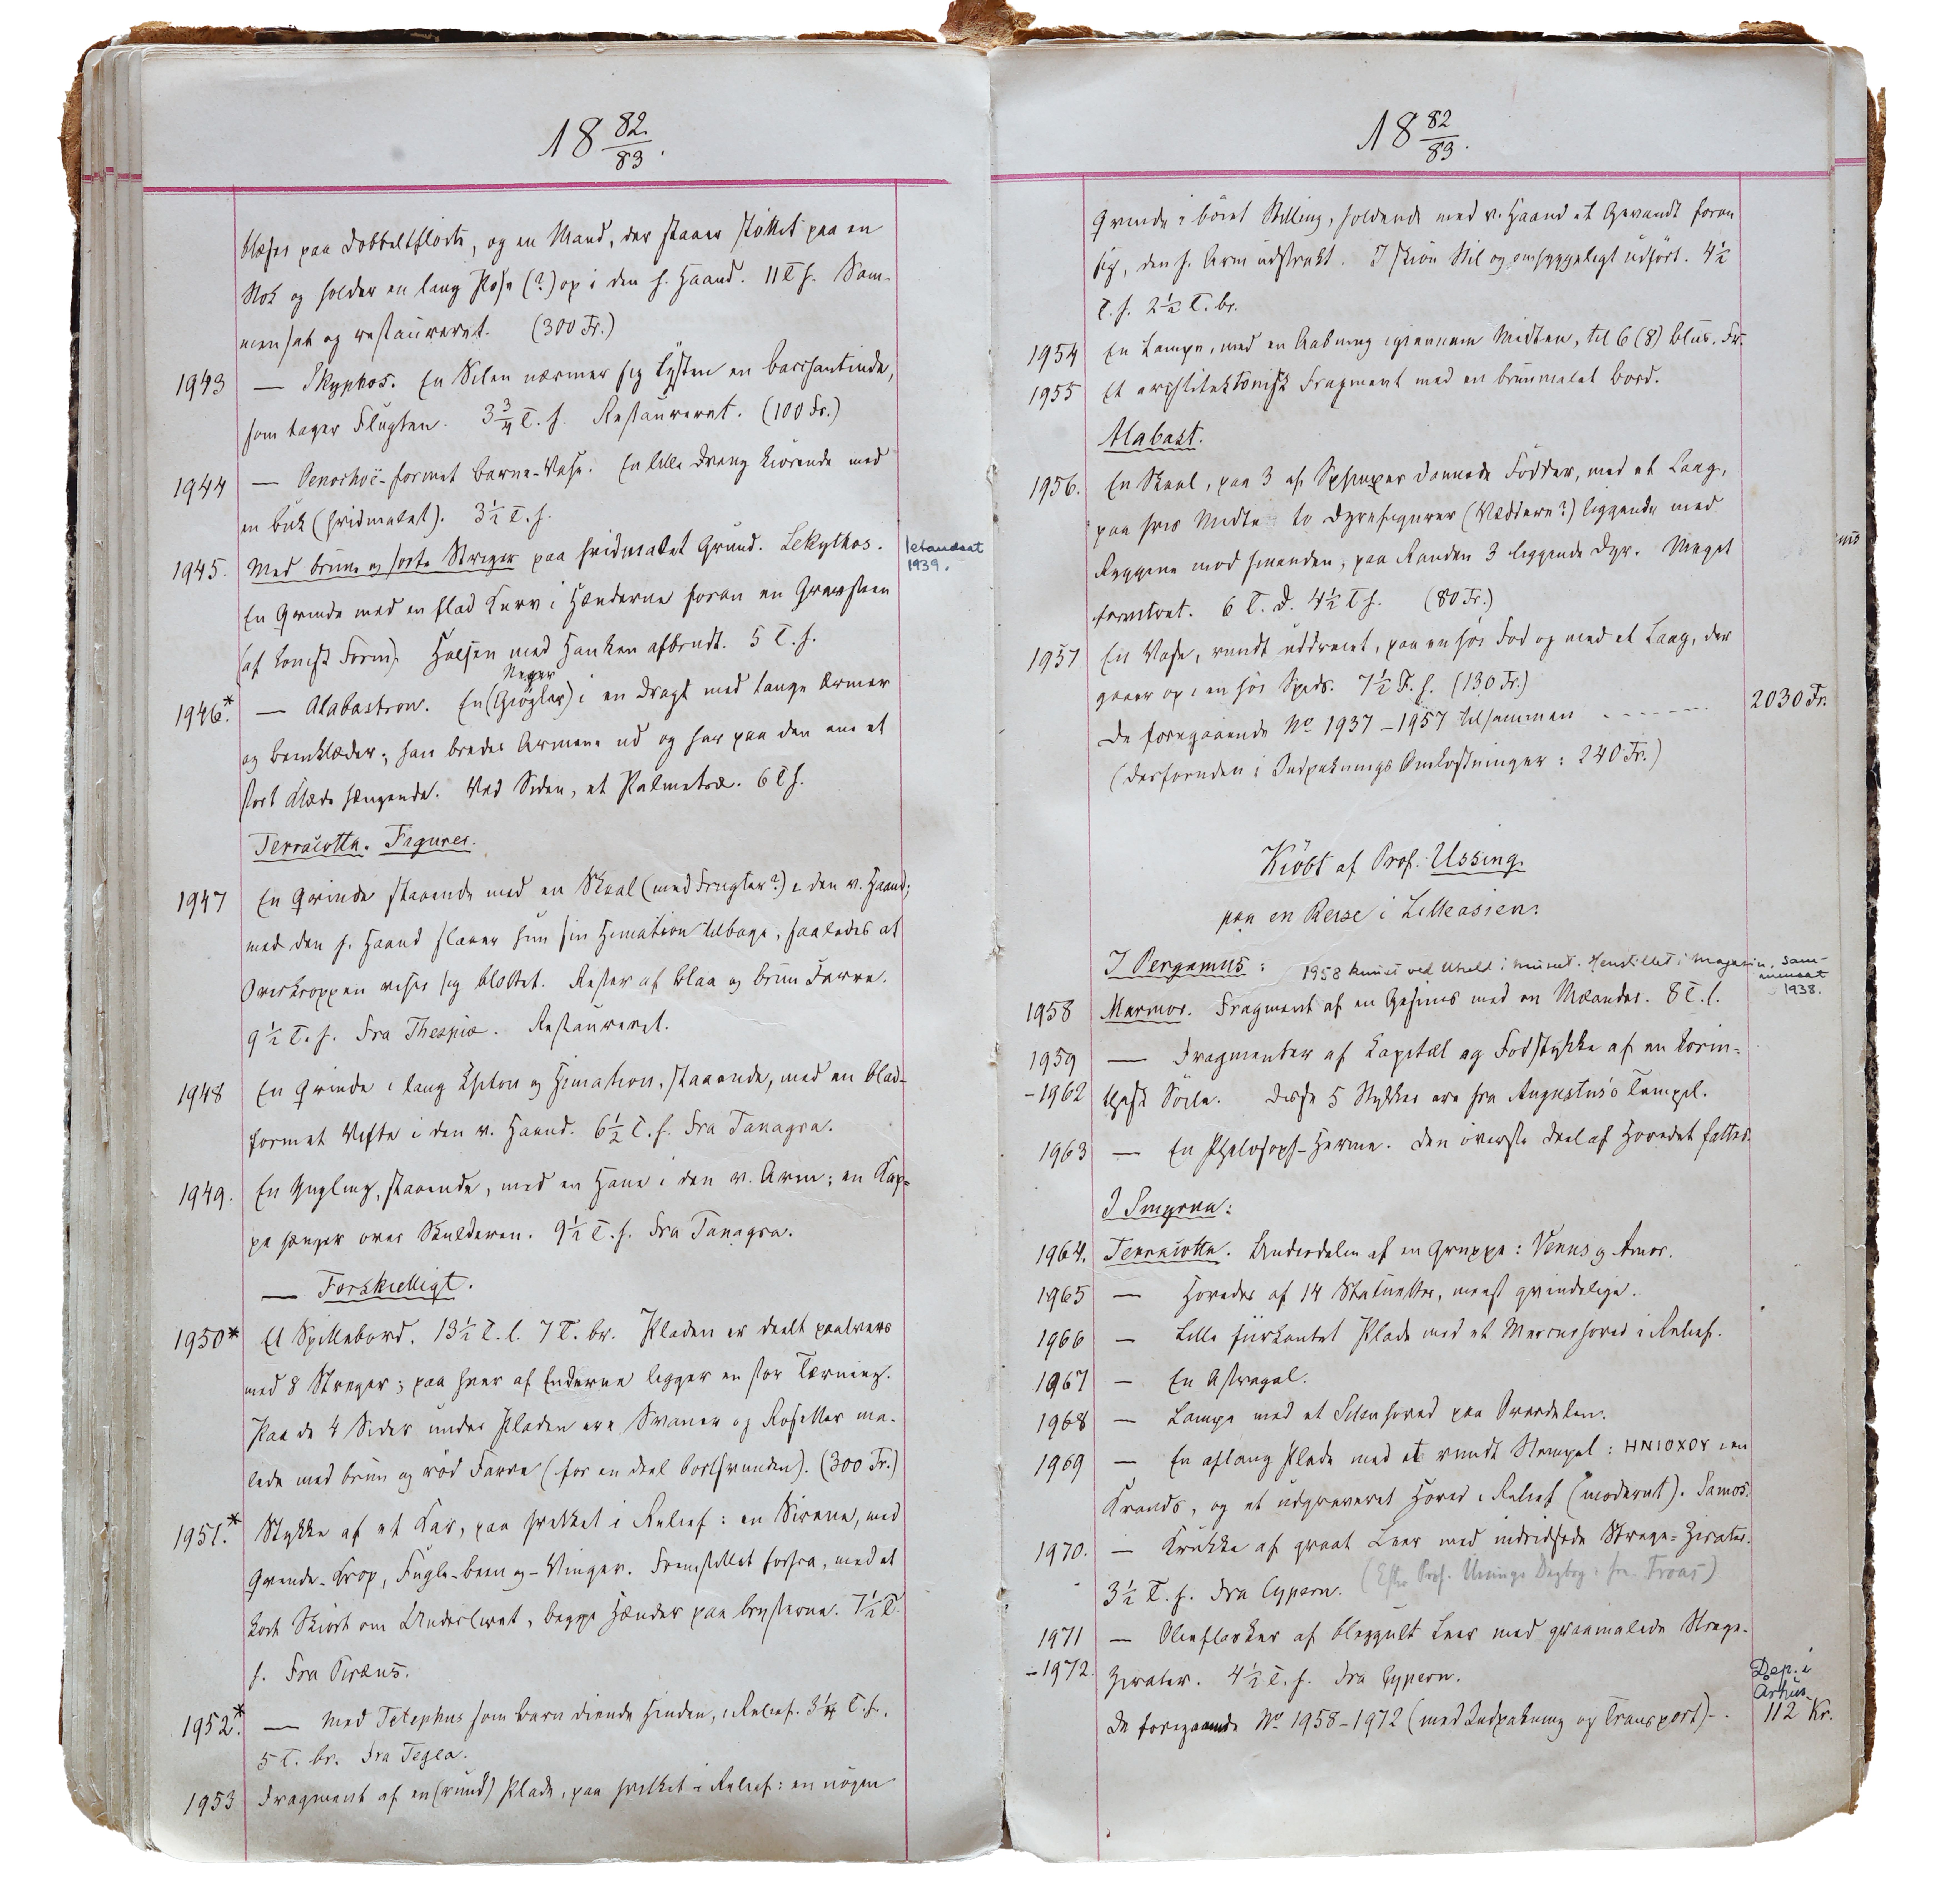 18 82/83.
blæser paa Dobbeltfløite, og en Mand, der staaer støttet paa en
Stok og holder en lang Pose (?) op i den h. Haand. 11 T. h. Sam-
mensat og restaureret. (300 Fr.)
1943 — Skyphos. En Silen nærmer sig lysten en Bacchantinde,
som tager Flugten. 3 3/4 T. h. Restaureret. (100 Fr.)
1944 — Oenochoë-formet Barne-Vase. En lille Dreng kiørende med
en Buk (hvidmalet). 3 1/2 T. h.
1945. Med brune og sorte Streger paa hvidmalet Grund. Lekythos. istandsat
1939.
En Qvinde med en flad Kurv i Hænderne foran en Gravsteen
(af konisk Form). Halsen med Hanken afbrudt. 5 T. h.
Neger
1946.* — Alabastron. En (Giøgler) i en Dragt med lange Ærmer
og Beenklæder; han breder Armene ud og har paa den ene et
stort Klæde hængende. Ved Siden, et Palmetræ. 6 T. h.
Terracotta. Figurer.
1947 En Qvinde staaende med en Skaal (med Frugter?) i den v. Haand;
med den h. Haand slaaer hun sin Himation tilbage, saaledes at
Overkroppen viser sig blottet. Rester af blaa og brun Farve.
9 1/2 T. h. Fra Thespiæ. Restaureret.
1948 En Qvinde i lang Chiton og Himation, staaende, med en blad-
formet Vifte i den v. Haand. 6 1/2 T. h. Fra Tanagra.
1949. En Yngling, staaende, med en Hane i den v. Arm; en Kap-
pe hænger over Skulderen. 9 1/2 T. h. Fra Tanagra.
— Forskielligt.
1950* Et Spillebord. 13 1/2 T. l. 7 T. br. Pladen er deelt paatvers
med 8 Streger; paa hver af Enderne ligger en stor Tærning.
Paa de 4 Sider under Pladen ere Svaner og Rosetter ma-
lede med brun og rød Farve (for en deel bortsvunden). (300 Fr.)
1951.* Stykke af et Kar, paa hvilket i Relief: en Sirene, med
Qvinde-Krop, Fugle-been og -Vinger. Fremstillet forfra, med et
kort Skiørt om Underlivet, begge Hænder paa Brysterne. 7 1/2 T.
h. Fra Piræus.
1952.* — med Telephus som Barn diende Hinden, i Relief. 3 1/4 T. h.
5 T. br. Fra Tegea.
1953 Fragment af en (rund) Plade, paa hvilket i Relief: en nøgen
18 82/83.
Qvinde i bøiet Stilling, holdende med v. Haand et Gevandt foran
sig, den h. Arm udstrakt. I skiøn Stil og omhyggeligt udført. 4 1/2
T. h. 2 1/2 T. br.
1954 En Lampe, med en Aabning igiennem Midten, til 6 (8) Blus. Fr.
1955 Et architektonisk Fragment med en brunmalet Bord.
Alabast.
1956. En Skaal, paa 3 af Sphinxer dannede Fødder, med et Laag,
paa hvis Midte to Dyrefigurer (Væddere?) liggende med
Ryggene mod hinanden, paa Randen 3 liggende Dyr. Meget
forvitret. 6 T. D. 4 1/2 T. h. (80 Fr.)
1957 En Vase, rundt uddreiet, paa en høi Fod og med et Laag, der
gaaer op i en høi Spids. 7 1/2 T. h. (130 Fr.)
De foregaaende No 1937–1957 tilsammen - - - - - - 2030 Fr.
(desforuden i Indpaknings Omkostninger: 240 Fr.)
Kiøbt af Prof. Ussing
paa en Reise i Lilleasien:
I Pergamus: 1958 knust ved Uheld i museet. Henstillet i magasin. Sam-
mensat
1938.
1958 Marmor. Fragment af en Gesims med en Mæander. 8 T. l.
1959 — Fragmenter af Kapitæl og Fodstykke af en korin-
-1962 thisk Søile. Disse 5 Stykker ere fra Augustus's Tempel.
1963 — En Philosoph-Herme. Den øverste Deel af Hovedet fattes.
I Smyrna:
1964. Terracotta. Underdelen af en Gruppe: Venus og Amor.
1965 — Hoveder af 14 Statuetter, meest qvindelige.
1966 — Lille fiirkantet Plade med et Mercurhoved i Relief.
1967 — En Astragal.
1968 — Lampe med et Silenhoved paa Overdelen.
1969 — En aflang Plade med et rundt Stempel: ΗΝΙΟΧΟΥ i en
Krands, og et udgraveret Hoved i Relief (moderne). Samos.
1970. — Krukke af graat Leer med indridsede Strege-Zirater.
3 1/2 T. h. Fra Cypern. (Efter Prof. Ussings Dagbog: fra Troas)
1971 — Olieflasker af bleggult Leer med graamalede Strege-
-1972. Zirater. 4 1/2 T. h. Fra Cypern.
Dep. i
Århus
De foregaaende No 1958–1972 (med Indpakning og Transport) - . 112 Kr.